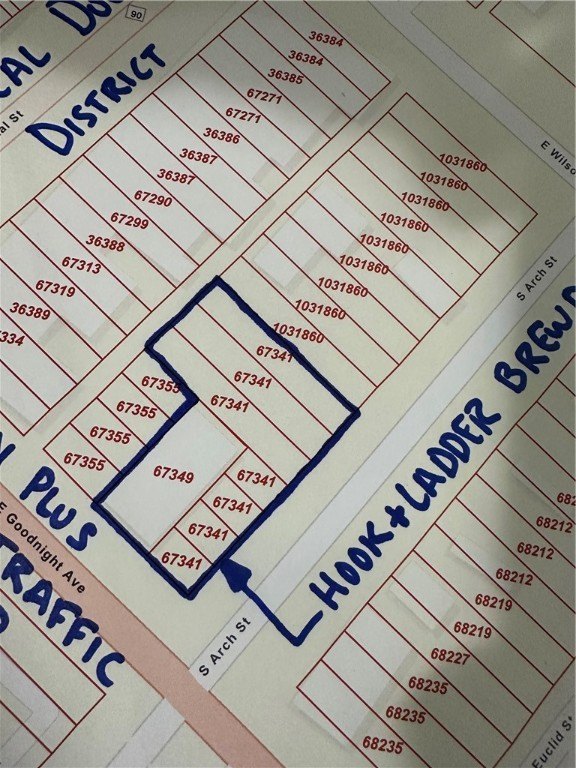 90
DISTRICT
36384
36384
36385
67271
67271
36386
36387
36387
67290
67299
36388
67313
67319
36389
1031860
1031860
1031860
1031860
1031860
1031860
1031860
1031860
1031860
67341
67341
67341
67355
67355
67355
67355
67349
67341
67341
67341
67341
S Arch St
HOOK + LADDER BREW
PLUS
E Goodnight Ave
TRAFFIC
S Arch St
68212
68212
68219
68219
68227
68235
68235
68235
Euclid St